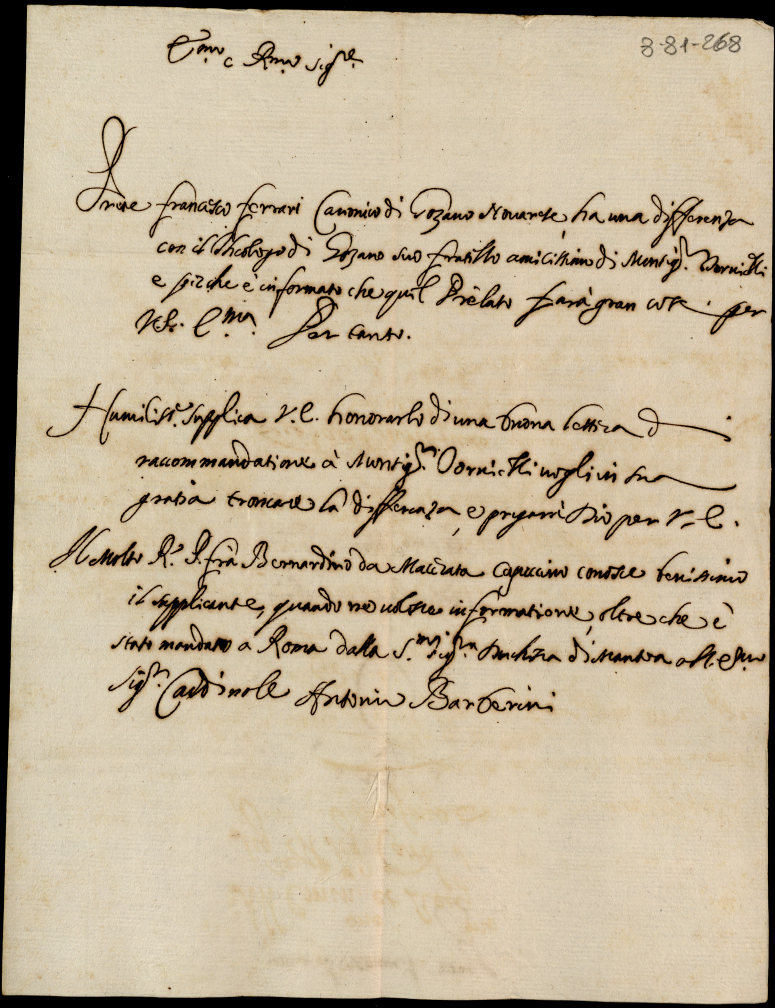 3-81-268
Em.mo e R.mo Sig.re
Prete Francesco Ferrari Canonico di Gozano Novarese, ha una differenza
con il Theologo di Gozano suo fratello amicissimo di Monsig.r Vornielli
e perche è informato che quel Prelato farà gran cose per
V. E.ma Per tanto.
Humiliss.te supplica V. E. honorarlo di una buona lettera d
raccommandatione à Monsig.r Vornielli vogli in sua
gratia troncare la differenza, e pregarà Dio per V. E.
Il Molto R.do P. frà Bernardino da Macerata Capuccino conosce benissimo
il supplicante, quando ne volesse informatione, oltre che è
stato mandato a Roma dalla S.ma Sig.ra Duchessa di Mantoa all'Em.mo
Sig.r Cardinale Antonio Barberini